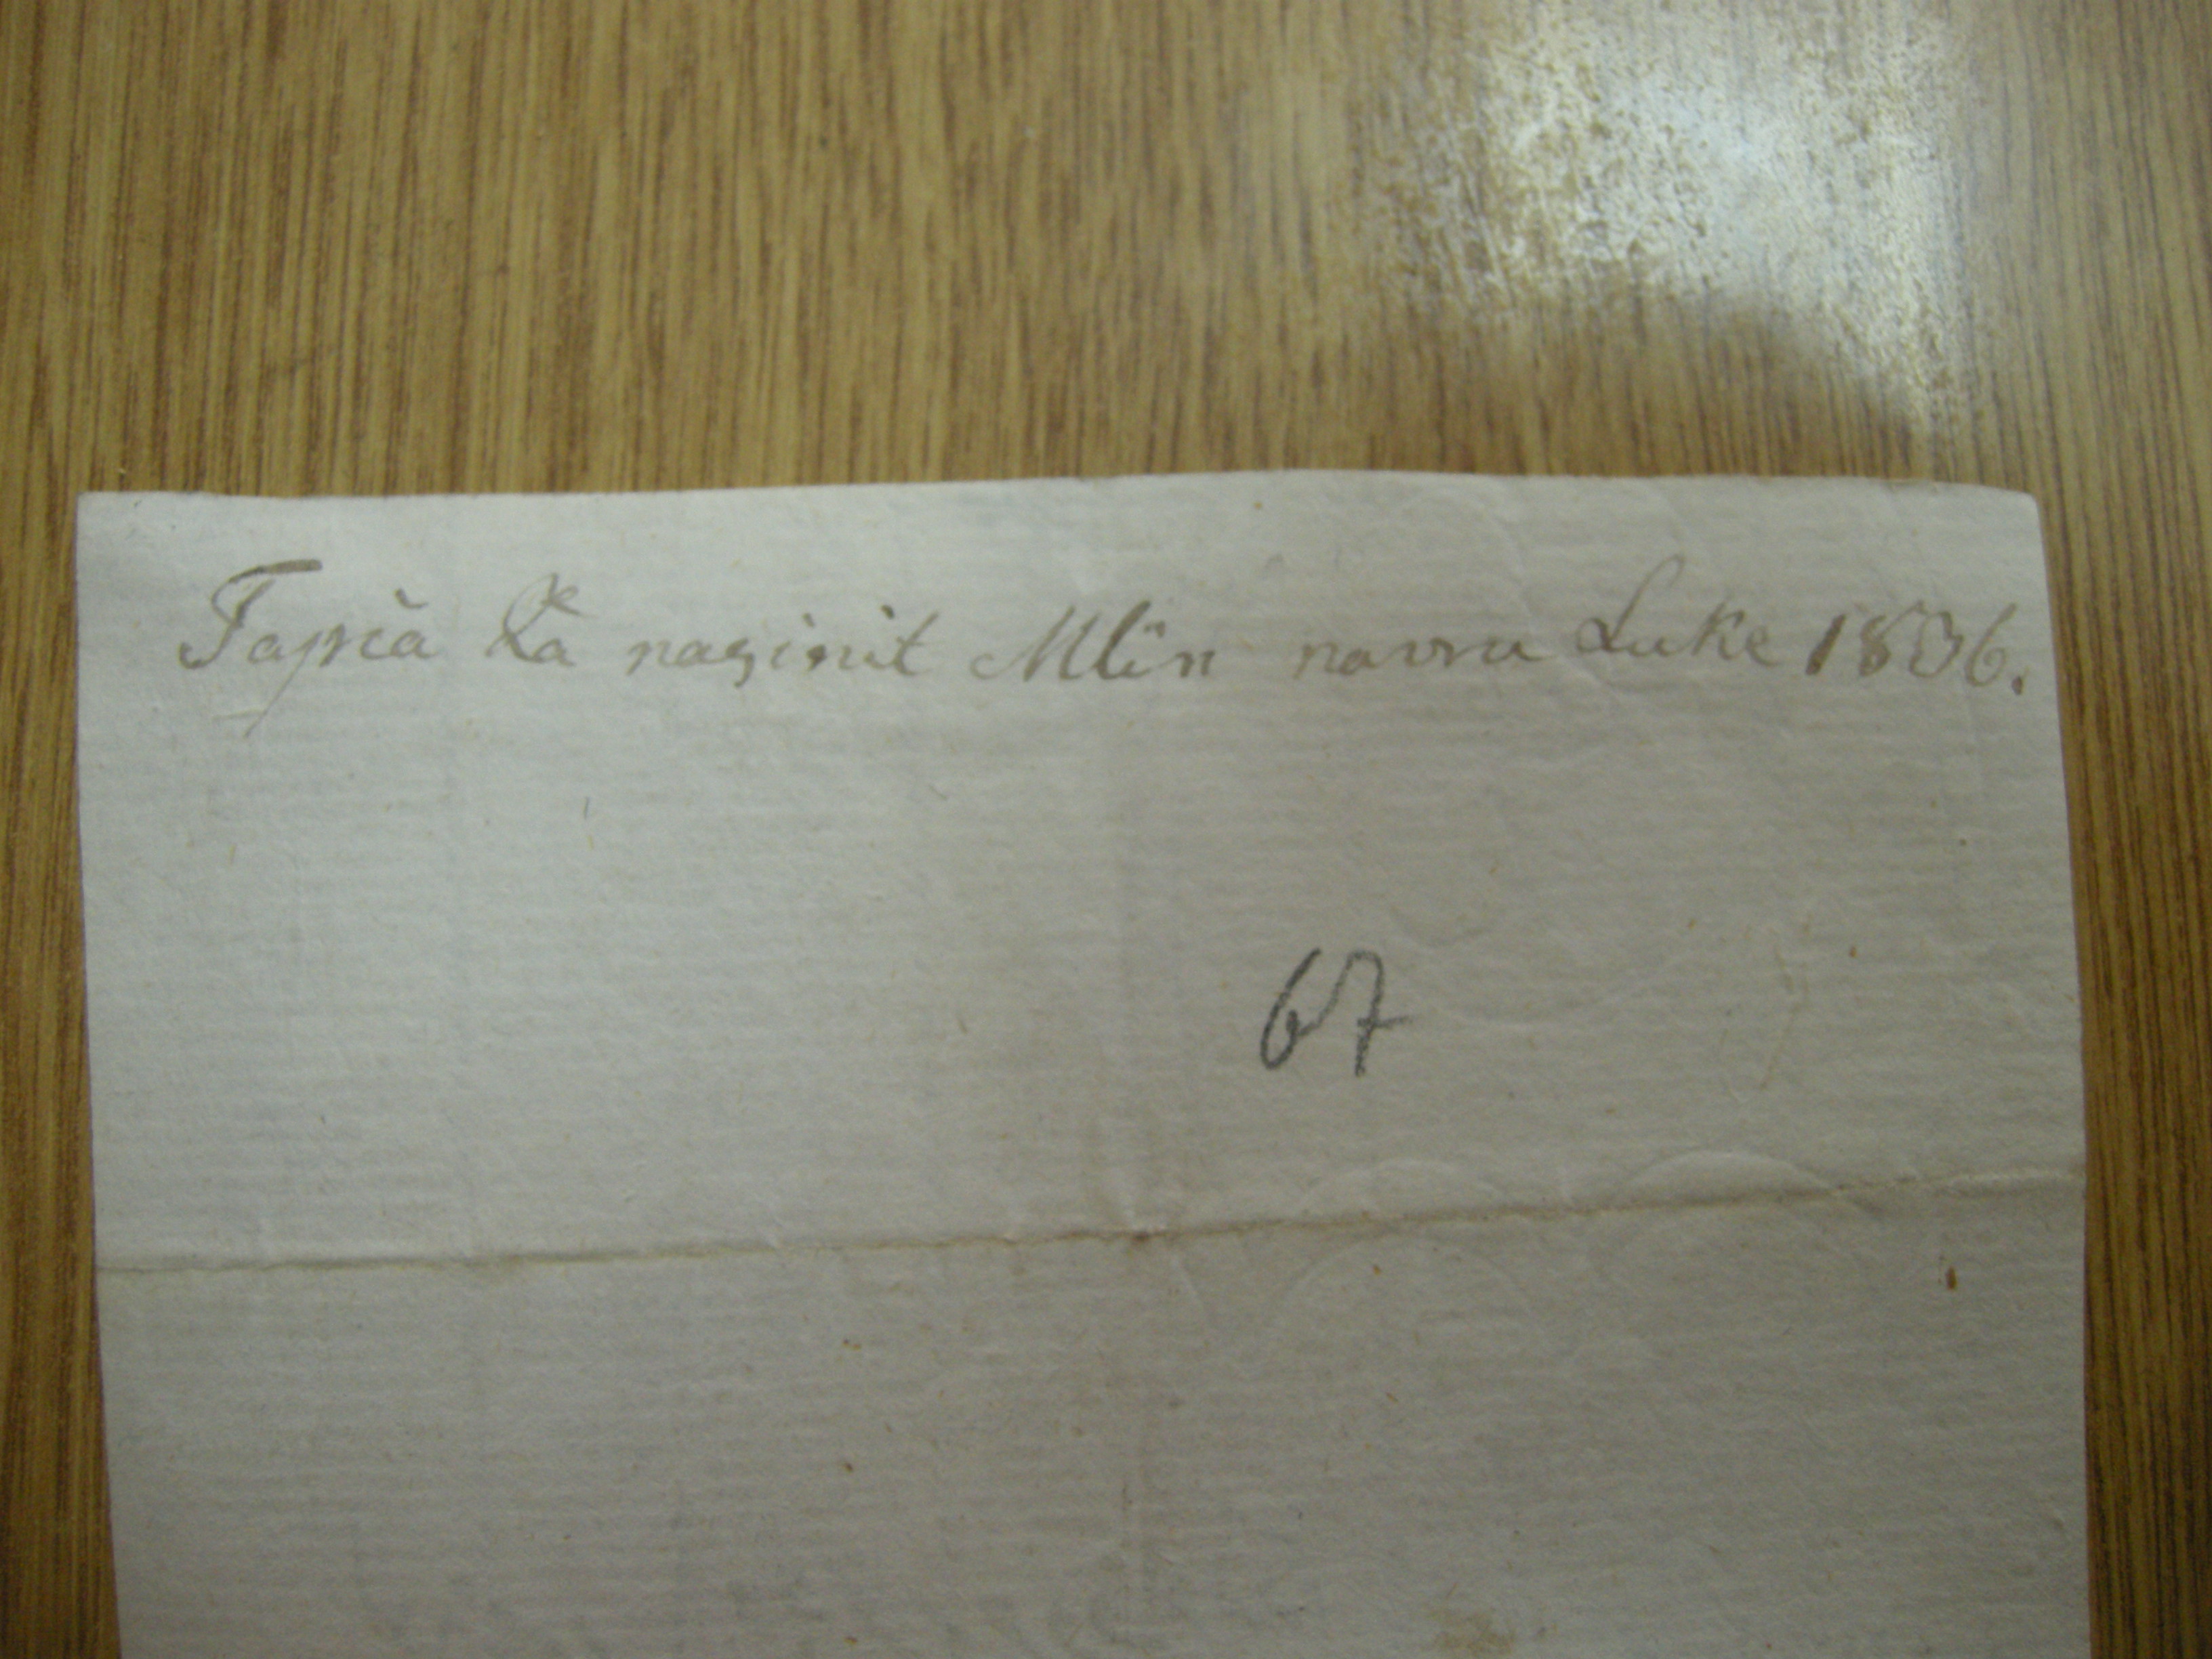 Tapià Za naginit Mlin navru Luke 1836.
67